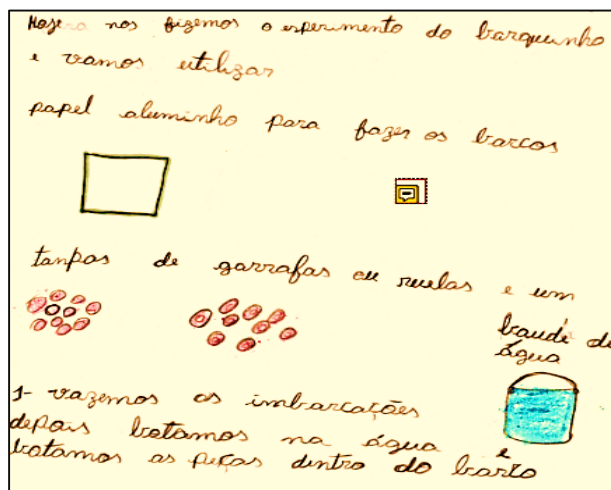 Hoje nos fizemos o esperimento do barquinho
e vamos utilizar
papel aluminho para fazer os barcos
tanpas de garrafas ou ruelas e um
baude de
água
1- vazemos as imbarcações
depais botamos na água e
botamos as peças dentro do barco